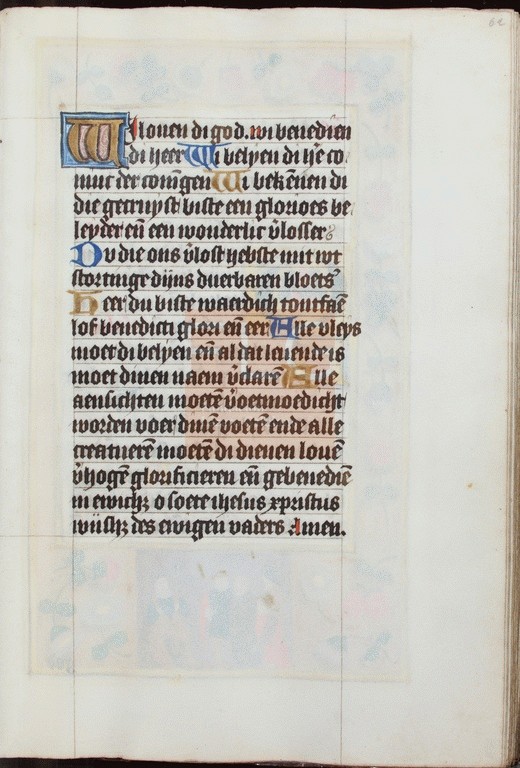 62
Wi louen di god. wi benedien
di heer Wi belyen di h̄e co
ninc der coningen Wi bekēnen di
die gecruyst biste een glorioes be
leyder eñ een wonderlic v̄losser
Du die ons v̄lost hebste mit wt
stortinge dijns duerbaren bloets
Heer du biste waerdich tontfaē
lof benedicti glori eñ eer Alle vleys
moet di belyen eñ al dat leuende is
moet dinen naem v̄clarē Alle
aensichten moetē v̄oetmoedicht
worden voer dinē voetē ende alle
creatuerē moetē di dienen louē
v̄hogē glorificieren eñ gebenediē
in ewichꝫ o soete ihesus xp̄ristus
des ewigen vaders Amen.